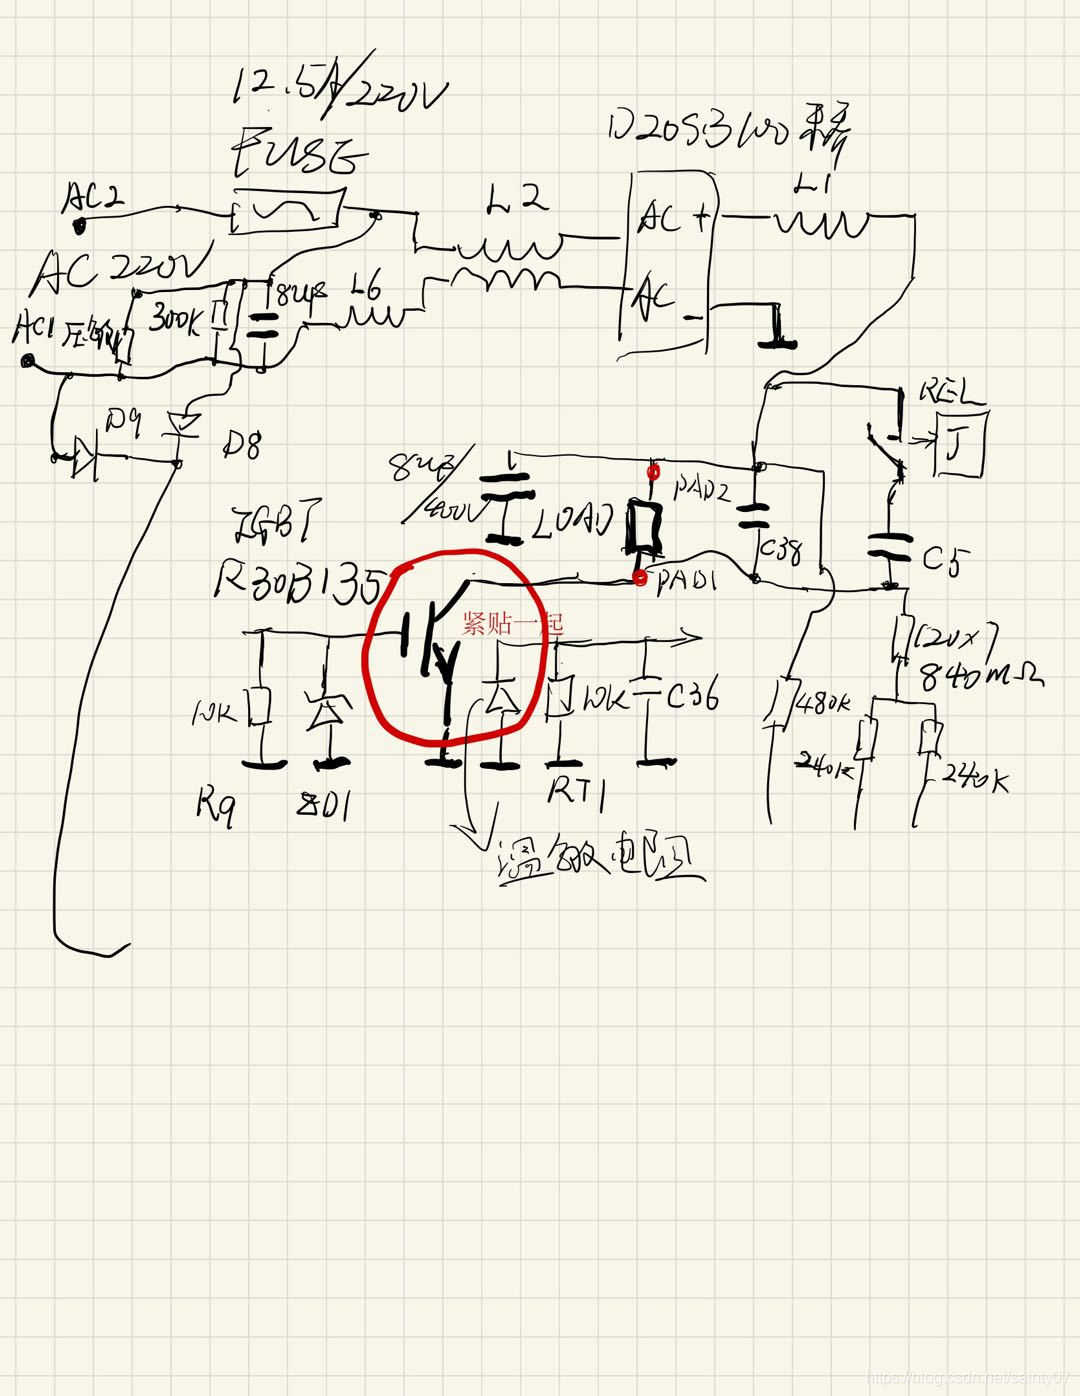 12.5A/220V
FUSE
D20S3
L1
AC2
L2
AC +
AC 220V
8uF
L6
AC -
AC1
300K
D9
D8
REL
J
8uF
/400V
LOAD
PAD2
C38
C5
IGBT
R30B135
PAD1
紧贴一起
120x7
840mΩ
10K
10K
C36
480K
240K
240K
R9
ZD1
RT1
温敏电阻
https://blog.csdn.net/sainty07